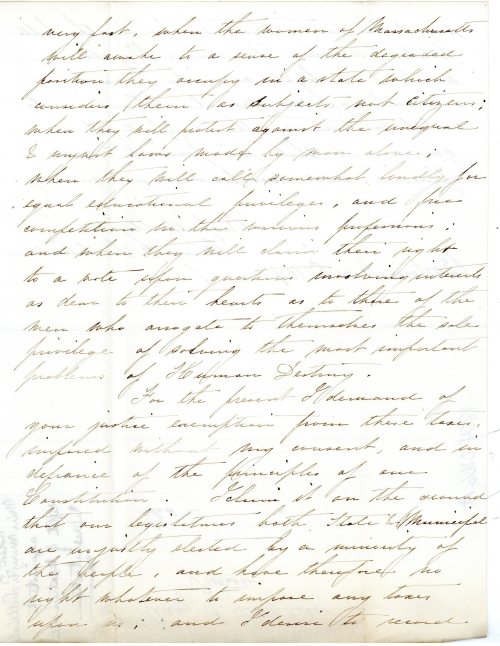 very fast, when the women of Massachusetts
will awake to a sense of the degraded
position they occupy in a state which
considers them as subjects not citizens;
when they will protest against the unequal
& unjust laws made by man alone;
when they will call somewhat loudly for
equal educational privileges, and free
competition in the various professions;
and when they will claim their right
to a vote upon questions involving interests
as dear to their hearts as to those of the
men who arrogate to themselves the sole
privilege of solving the most important
problems of Human Destiny.
For the present I demand of
your justice exemption from these taxes,
imposed without my consent, and in
defiance of the principles of our
Constitution. I claim it on the ground
that our legislatures both State & Municipal
are unjustly elected by a minority of
the people, and have therefore no
right whatever to impose any taxes
upon us; and I desire to record